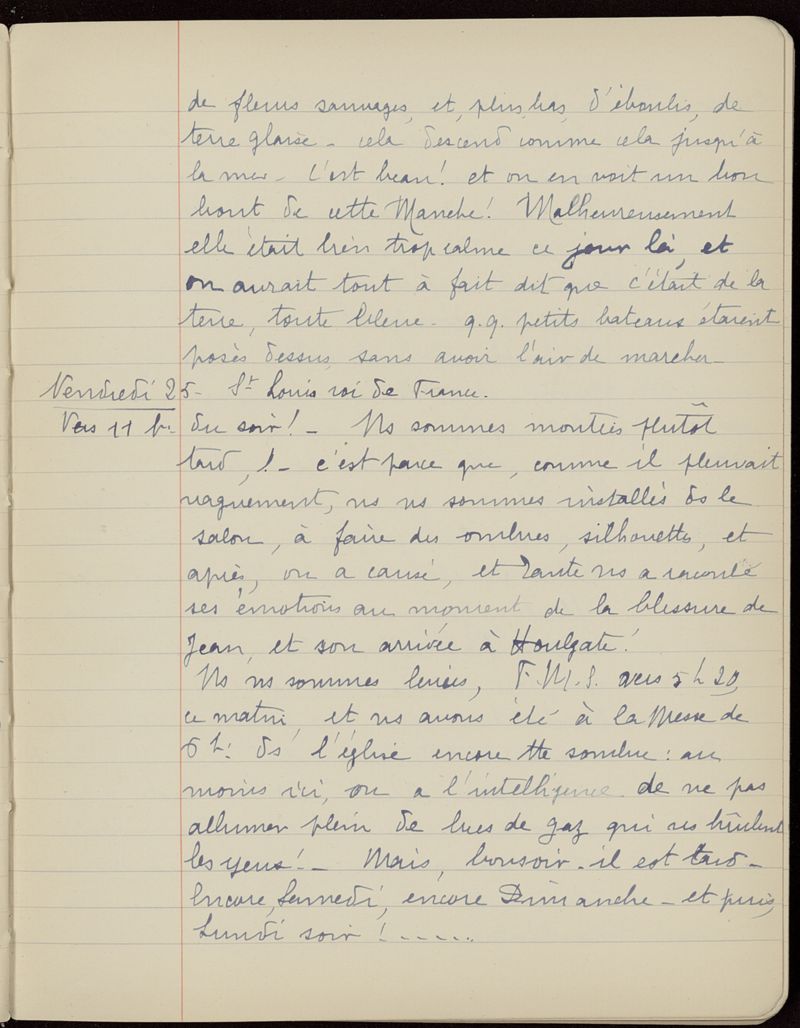 de fleurs sauvages, et, plus bas, d'éboulis, de
terre glaise - cela descend comme cela jusqu'à
la mer - C'est beau! et on en voit un bon
bout de cette Manche! Malheureusement
elle était bien trop calme ce jour là, et
on aurait tout à fait dit que c'était de la
terre, toute bleue - q.q. petits bateaux étaient
posés dessus, sans avoir l'air de marcher -
Vendredi 25 - St Louis roi de France.
Vers 11 h. du soir! - Ns sommes montées plutôt
tard, ! - c'est parce que, comme il pleuvait
vaguement, ns ns sommes installés ds le
salon, à faire des ombres, silhouettes, et
après, on a causé, et Tante ns a raconté
ses émotions au moment de la blessure de
Jean, et son arrivée à Houlgate!
Ns ns sommes levées, F. M. S. vers 5 h 20,
ce matin, et ns avons été à la Messe de
6 h: ds l'église encore tte sombre: au
moins ici, on a l'intelligence de ne pas
allumer plein de becs de gaz qui ns brûlent
les yeux! - Mais, bonsoir - il est tard -
Encore, Samedi, encore Dimanche - et puis,
Lundi soir! ......